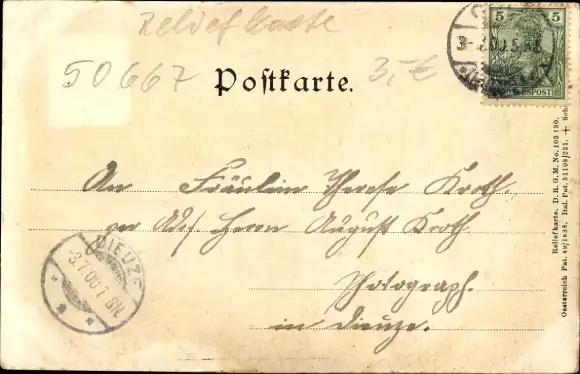 Reliefkarte
50667
Postkarte.
3,-€
5 5
REICHSPOST
An Fräulein Therese Kroth.
per Adr. Herrn August Kroth
Photograph.
in Dieuze.
DIEUZE
3.7.00.7-8N
Reliefkarte. D. R. G. M. No. 103 130.
Oesterreich Pat. 49/1838. Ital. Pat. 51108/231. +